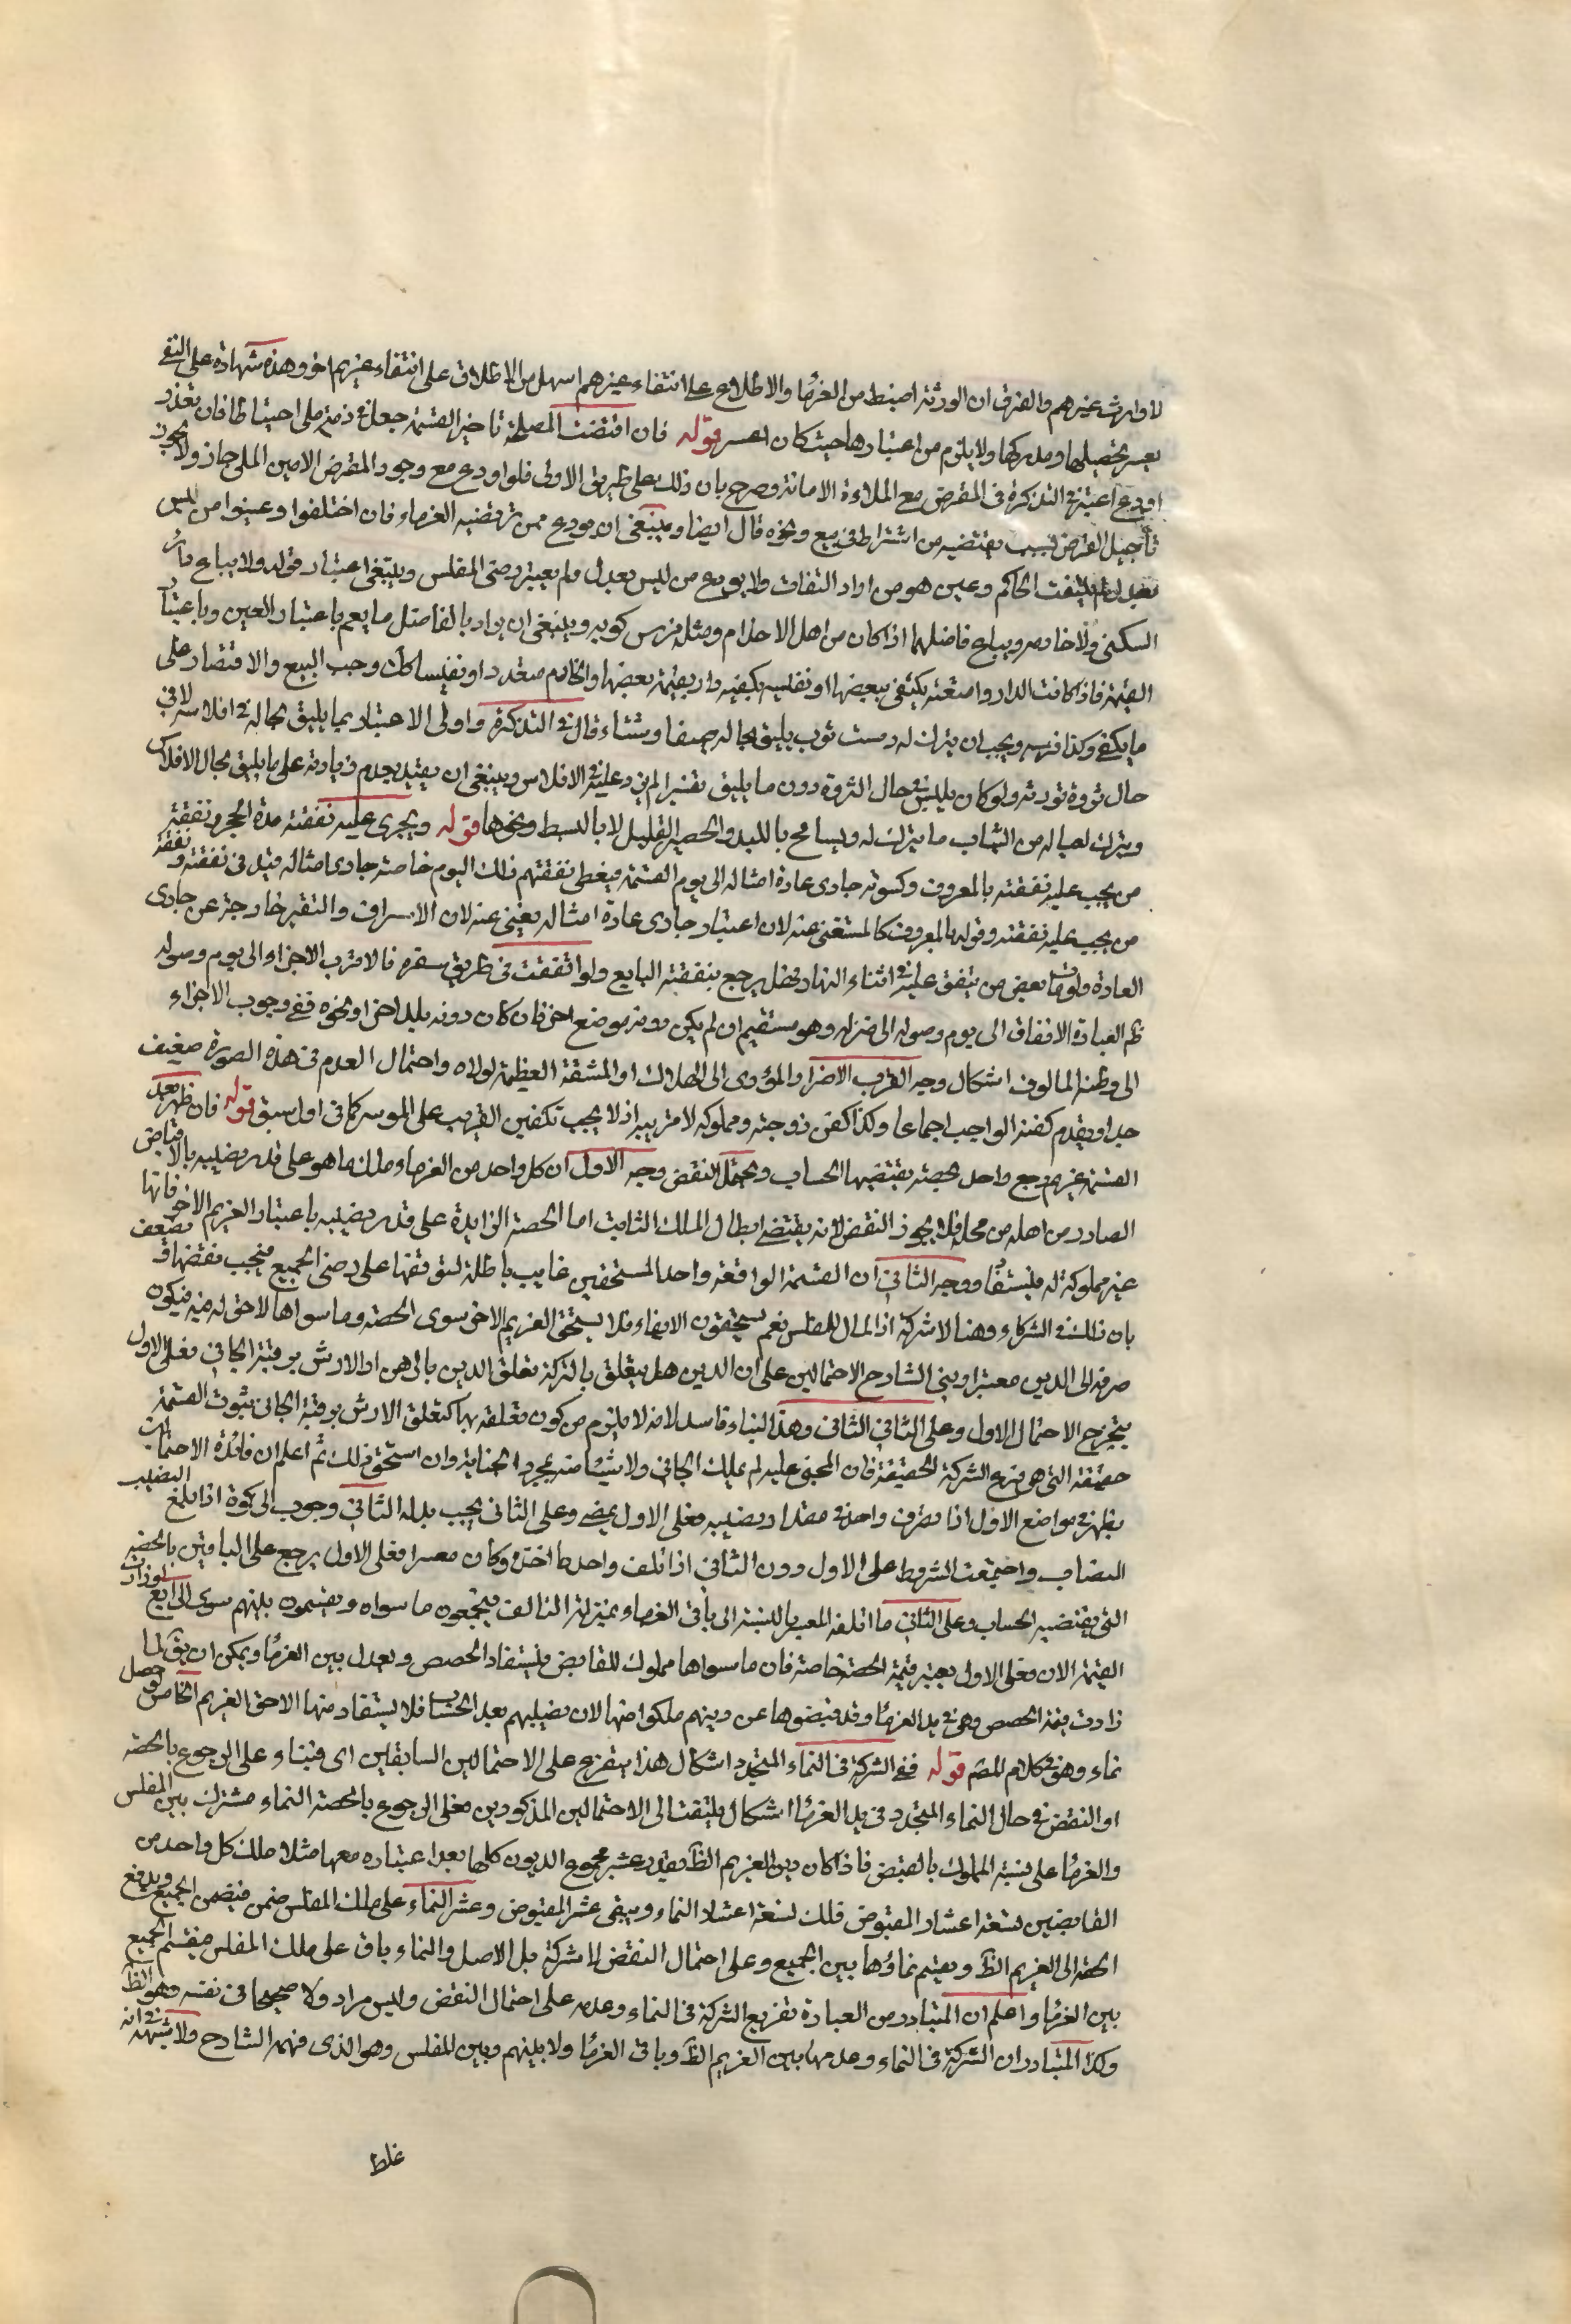 لا وارث غيرهم والفرق ان الورثة اضبط من الغرما والاطلاع على انتفاء غيرهم اسهل من الاطلاق على انتفاء غريم اخر وهذه شهادة على النفي
يعسر تحصيلها ومدركها ولا يلزم من اعتبارها حيث كان اعسر قوله فان اقتضت المصلحة تاخير القسمة جعل في ذمة ملي احتياطا فان تعذر
اودع اعتبر في التذكرة في المقرض مع الملاءة الامانة وصرح بان ذلك على طريق الاولى فلو اودع مع وجود المقرض الامين الملي جاز ولا يجوز
تأجيل القرض بسبب يقتضيه من اشتراط في بيع ونحوه قال ايضا وينبغي ان يودع ممن ترتضيه الغرماء فان اختلفوا وعينوا من ليس
بعدل لم يلتفت الحاكم وعين هو من اراد الثقات ولا يودع من ليس بعدل ولم يعتبر رضى المفلس وينبغي اعتبار قوله ولا يباع دار
السكنى ولا خادمه ويباع فاضلهما اذا كان من اهل الاحترام ومثله فرس ركوبه وينبغي ان يراد بالفاضل ما يعم باعتبار العين وباعتبار
القيمة فاذا كانت الدار واسعة يكتفي ببعضها او نفيسة يكفيه دار بقيمة بعضها والخادم متعدد او نفيسا كك وجب البيع والاقتصار على
ما يكفي وكذا فرسه ويجب ان يترك له دست ثوب يليق بحاله صيفا وشتاء قال في التذكرة واولى الاعتبار بما يليق بحاله في افلاسه لا في
حال ثروة ثورته ولو كان يلبس في حال الثروة دون ما يليق تقتيرا لم يزد عليه في الافلاس وينبغي ان يقيد بعدم زيادته على ما يليق بحال الافلاس
ويترك لعياله من الثياب ما يترك له ويسامح باللبد والحصير القليل لا بالبسط ونحوها قوله ويجرى عليه نفقته مدة الحجر ونفقة
من يجب عليه نفقته بالمعروف وكسوته جارى عادة امثاله الى يوم القسمة فيعطى نفقتهم ذلك اليوم خاصة جارى امثاله قيد في نفقته ونفقة
من يجب عليه نفقته وقوله بالمعروف كالمستغنى عنه لان اعتبار جارى عادة امثاله يغنى عنه لان الاسراف والتقتير خارجة عن جارى
العادة ولو مات بعض من ينفق عليه في اثناء النهار فهل يرجع بنفقته البايع ولو اتفقت في طريق سفره فالاقرب الاجراء الى يوم وصوله
ظ العبارة الانفاق الى يوم وصوله الى منزله وهو مستقيم ان لم يكن دونه موضع اخر فان كان دونه بلد اخر او نحوه ففي وجوب الاجراء
الى وطنه المالوف اشكال وجه القرب الاضرار المؤدى الى الهلاك او المشقة العظيمة لولاه واحتمال العدم في هذه الصورة ضعيف
جدا ويقدم كفنه الواجب اجماعا وكذا كفن زوجته ومملوكه لا قريبه اذ لا يجب تكفين القريب على الموسر كما في اول سبق قوله فان ظهر بعد
القسمة غريم رجع واحد بحصته يقتضيها الحساب ويحتمل النقض وجه الاول ان كل واحد من الغرماء وملك ما هو على قدر نصيبه بالاقباض
الصادر من اهله من محله فلا يجوز النقض لانه يقتضى ابطال الملك الثابت اما الحصة الزايدة على قدر نصيبه باعتبار الغريم الاخر فانها
غير مملوكة له فيسترد ووجه الثاني ان القسمة الواقعة واحد المستحقين غايب باطلة لتوقفها على رضى الجميع فيجب نقضها وتضعف
بان ذلك في الشركاء وهنا لا شركة اذ المال للمفلس نعم يستحقون الايفاء فلا يستحق الغريم الاخر سوى الحصة وما سواها لا حق له فيه فيكون
صرفه الى الدين معتبرا وبنى الشارح الاحتمالين على ان الدين هل يتعلق بالتركة تعلق الدين بالرهن او الارش برقبة الجاني فعلى الاول
يتخرج الاحتمال الاول وعلى الثاني الثاني وهذا البناء فاسد لانه لا يلزم من كون تعلقه بها كتعلق الارش برقبة الجاني ثبوت القسمة
حقيقة التي هو فرع الشركة الحقيقة فان المجني عليه لم يملك الجاني ولا شيئا منه بمجرد الجناية وان استحق ذلك ثم اعلم ان فائدة الاحتمالين
يظهر في مواضع الاول اذا تصرف واحد في مقدار نصيبه فعلى الاول يمضى وعلى الثاني يجب بدله الثاني وجوب الزكوة اذا بلغ النصيب
النصاب واجتمعت الشروط على الاول دون الثاني اذا تلف واحد ما اخذ وكان معسرا فعلى الاول يرجع على الباقين بالحصة
التي يقتضيه الحساب وعلى الثاني ما اتلفه المعسر بالنسبة الى باقي الغرماء بمنزلة التالف فيجمعون ما سواه ويقسمون بينهم سوى الرابع لو زادت
القيمة الان فعلى الاول يعتبر قيمة الحصة خاصة فان ما سواها مملوك للقابض فيستفاد الحصص ويعدل بين الغرما ويمكن ان يق لما
زادت قيمة الحصص وهي في يد الغرما وقد قبضوها عن دينهم ملكوا منها لان نصيبهم بعد الحساب فلا يستفاد منها الا حق الغريم الخامس لو حصل
نماء وهو في كلام المص قوله ففي الشركة في النماء المتجدد اشكال هذا يتفرع على الاحتمالين السابقين اى فبناء على الرجوع بالحصة
او النقض في حال النماء المتجدد في يد الغرما اشكال يلتفت الى الاحتمالين المذكورين فعلى الرجوع بالحصة النماء مشترك بين المفلس
والغرما على نسبة المملوك بالقبض فاذا كان دين الغريم الظ بقدر عشر مجموع الديون كلها بعد اعتباره معها مثلا ملك كل واحد من
القابضين تسعة اعشار المقبوض فلك تسعة اعشار النماء ويبقى عشر المقبوض وعشر النماء على ملك المفلس ضمن فيضمن الجميع ويدفع
الحصة الى الغريم الظ ويقسم نماؤها بين الجميع وعلى احتمال النقض لا شركة بل الاصل والنماء باق على ملك المفلس فيقسم الجميع
بين الغرما واعلم ان المتبادر من العبارة تفريع الشركة في النماء وعدمه على احتمال النقض وليس مراد ولا صحيحا في نفسه وهو الظ
وكذا المتبادر ان الشركة في النماء وعدمها بين الغريم الظ وباقي الغرما ولا بينهم وبين المفلس وهو الذى فهمه الشارح ولا شبهة في انه
غلط